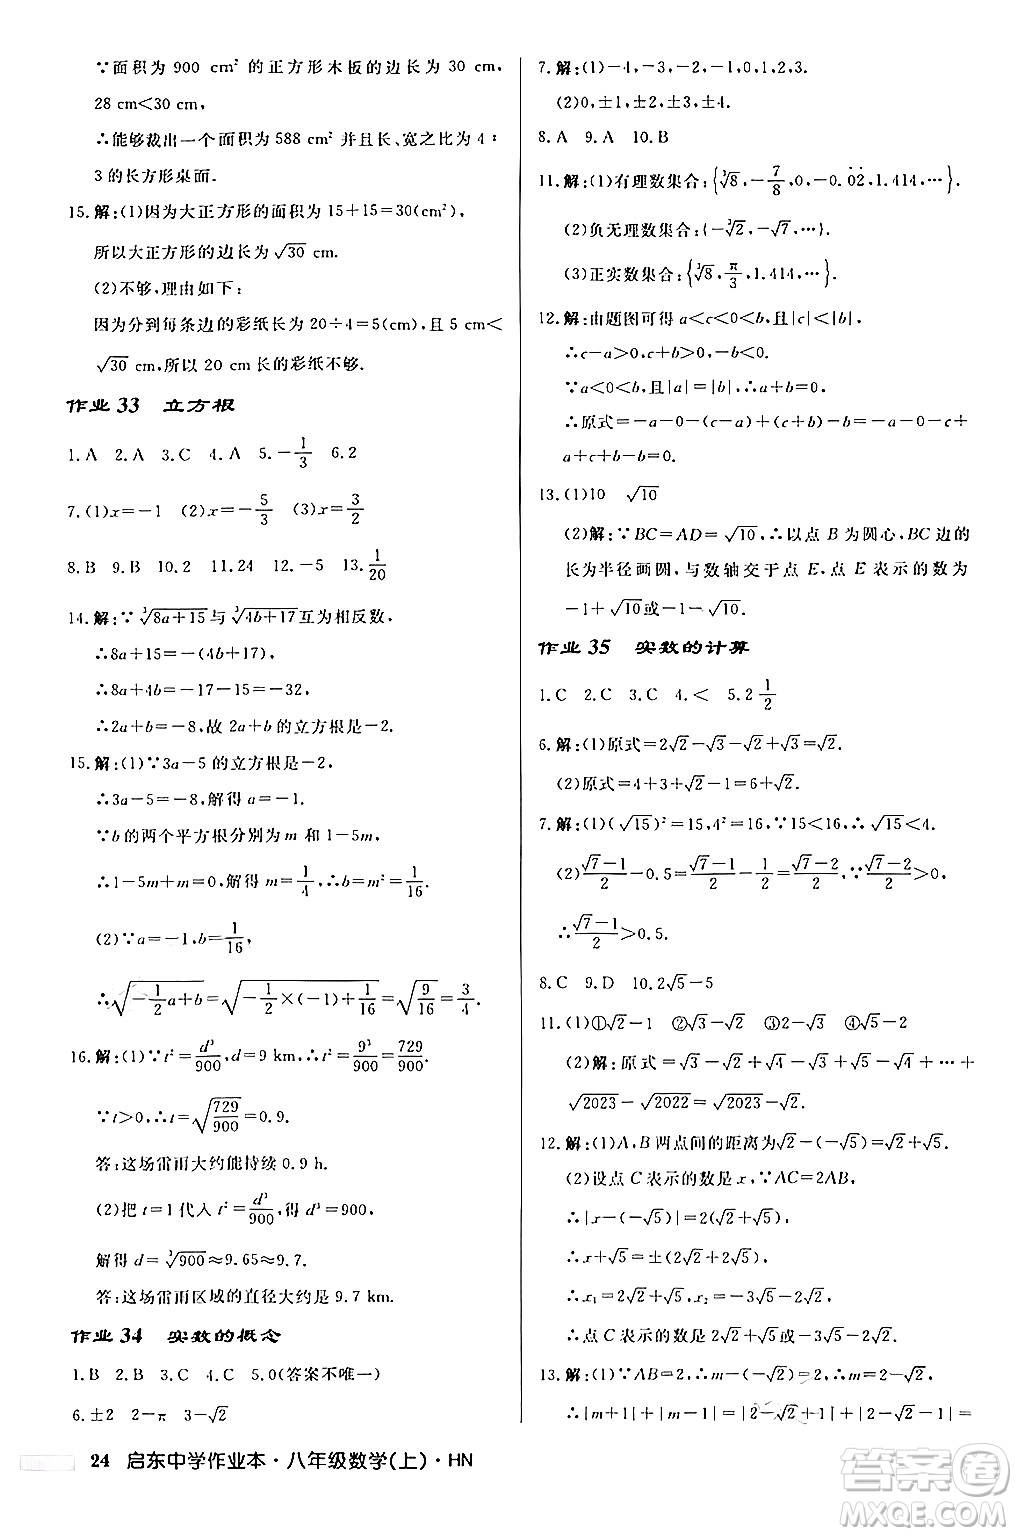 ∵面积为 900 cm² 的正方形木板的边长为 30 cm,
28 cm<30 cm,
∴能够裁出一个面积为 588 cm² 并且长、宽之比为 4∶
3 的长方形桌面.
15.解:(1)因为大正方形的面积为 15+15=30(cm²),
所以大正方形的边长为 √30 cm.
(2)不够,理由如下:
因为分到每条边的彩纸长为 20÷4=5(cm),且 5<
√30 cm,所以 20 cm 长的彩纸不够.
作业 33 立方根
1.A 2.A 3.C 4.A 5.−1/3 6.2
7.(1)x=−1 (2)x=−5/3 (3)x=3/2
8.B 9.B 10.2 11.24 12.−5 13.1/20
14.解:∵∛(8a+15)与∛(4b+17)互为相反数,
∴8a+15=−(4b+17),
∴8a+4b=−17−15=−32,
∴2a+b=−8,故 2a+b 的立方根是−2.
15.解:(1)∵3a−5的立方根是−2,
∴3a−5=−8,解得 a=−1.
∵b 的两个平方根分别为 m 和 1−5m,
∴1−5m+m=0,解得 m=1/4,∴b=1/16.
(2)∵a=−1,b=1/16,
∴√(−1/2a+b)=√(−1/2×(−1)+1/16)=√(9/16)=3/4.
16.解:(1)∵t²=d³/900,d=9 km,∴t²=9³/900=729/900.
∵t>0,∴t=√(729/900)=0.9.
答:这场雷雨大约能持续 0.9 h.
(2)把 t=1 代入 t²=d³/900,得 d³=900,
解得 d=∛900≈9.65≈9.7.
答:这场雷雨区域的直径大约是 9.7 km.
作业 34 实数的概念
1.B 2.B 3.C 4.C 5.0(答案不唯一)
6.±2 2−π 3−√2
24 启东中学作业本·八年级数学(上)·HN
7.解:(1)−4,−3,−2,−1,0,1,2,3.
(2)0,±1,±2,±3,±4.
8.A 9.A 10.B
11.解:(1)有理数集合:{∛8,−7/8,−0.0̇2̇,1.414,…}.
(2)负无理数集合:{−∛2,−√7,…}.
(3)正实数集合:{∛8,π/3,1.414,…}.
12.解:由题图可得 a<c<0<b,且|c|<|b|,
∴c−a>0,c+b>0.
∵a<0<b,且|a|=|b|,∴a+b=0.
∴原式=−a−0−(c−a)+(c+b)−b=−a−0−c+
a+c+b−b=0.
13.(1)10 √10
(2)解:∵BC=AD=√10,∴以点 B 为圆心,BC 边的
长为半径画圆,与数轴交于点 E,点 E 表示的数为
−1+√10或−1−√10.
作业 35 实数的计算
1.C 2.C 3.C 4.< 5.2 1/2
6.解:(1)原式=2√2−√2−√2=√2−√2.
(2)原式=4+3+√2−1=6+√2.
7.解:(1)(√15)²=15,4²=16,∵15<16,∴√15<4.
(2)(√7−1)/2−0.5=(√7−1)/2−1/2=(√7−2)/2,∵(√7−2)/2>0,
∴(√7−1)/2>0.5.
8.C 9.D 10.2√5−5
11.(1)①√2−1 ②√3−√2 ③2−√3 ④√5−2
(2)解:原式=√3−√2+√4−√3+√5−√4+…+
√2023−√2022=√2023−√2.
12.解:(1)A,B 两点间的距离为√2−(−√5)=√2+√5.
(2)设点 C 表示的数是 x,∵AC=2AB,
∴|x−(−√5)|=2(√2+√5),
∴x+√5=±(2√2+2√5),
∴x₁=2√2+√5,x₂=−2√2−3√5.
∴点 C 表示的数是 2√2+√5或−2√2−3√5.
13.解:(1)∵AB=2,∴m−(−√2)=2,∴m=2−√2.
∴|m+1|+|m−1|=|2−√2+1|+|2−√2−1|=
答案圈
MXQE.COM